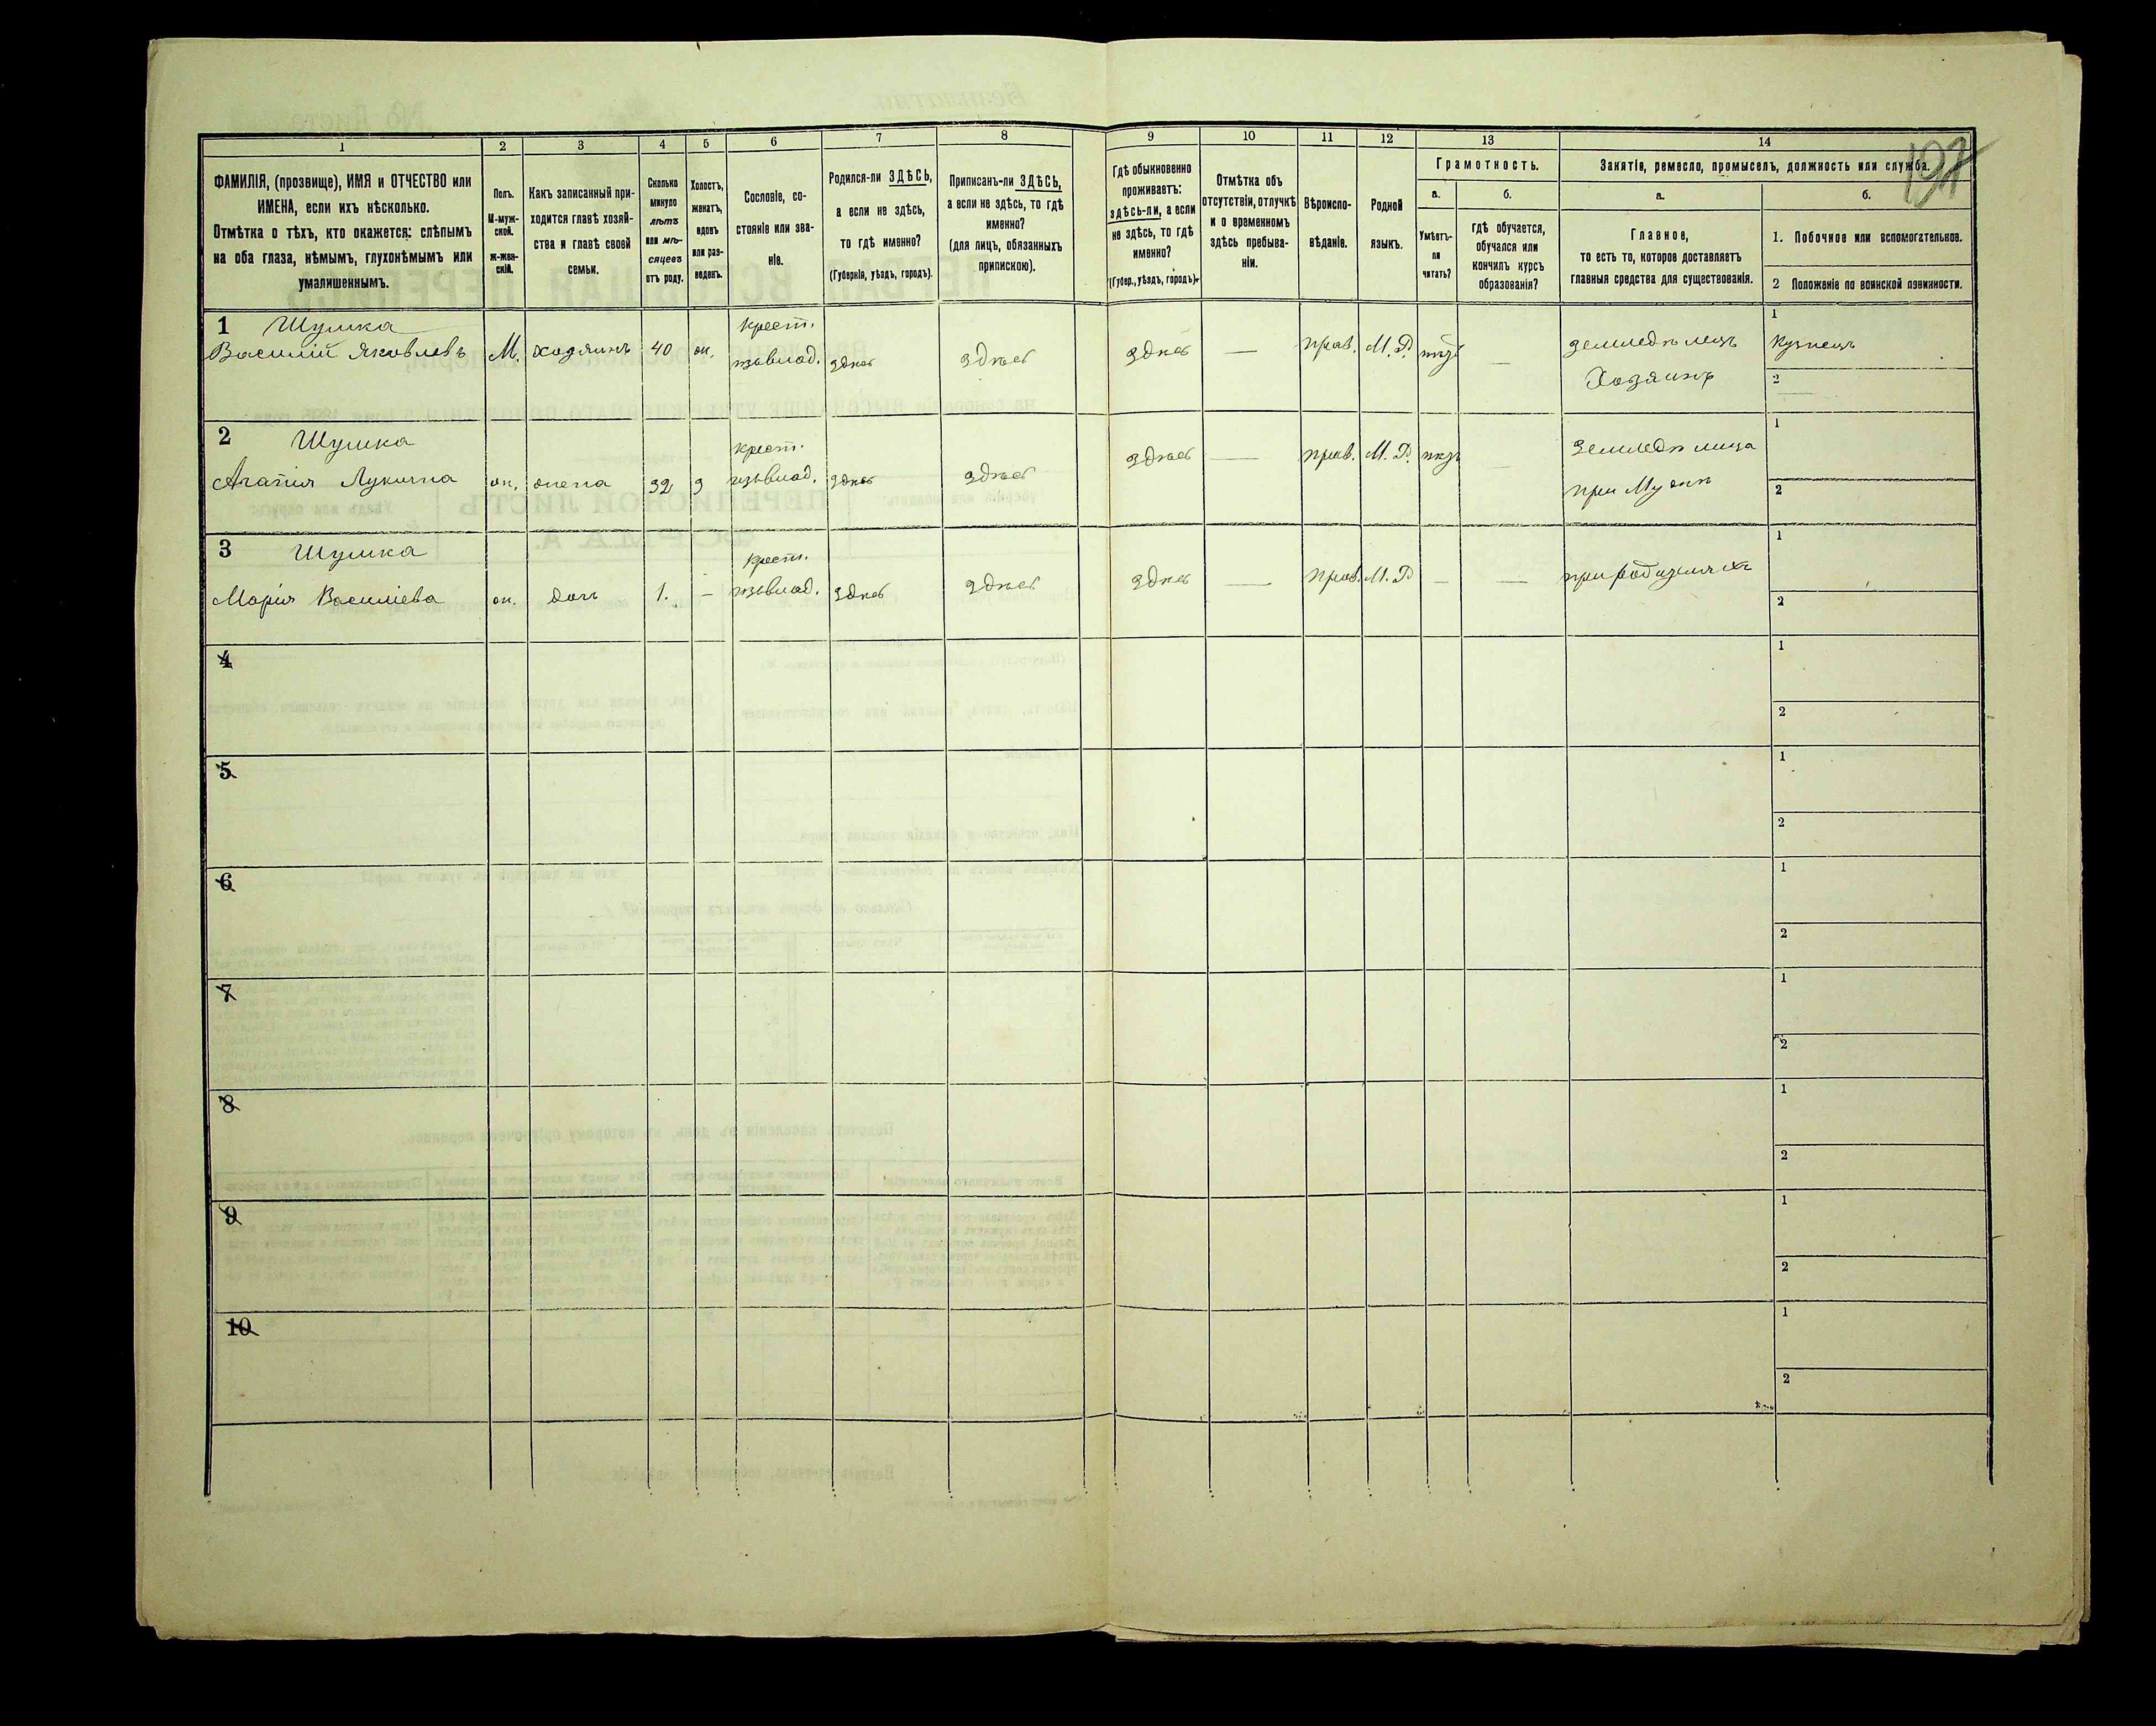 198
1
2
3
4
5
6
7
8
9
10
11
12
13
14
ФАМИЛІЯ, (прозвище), ИМЯ и ОТЧЕСТВО или
ИМЕНА, если ихъ нѣсколько.
Отмѣтка о тѣхъ, кто окажется: слѣпымъ
на оба глаза, нѣмымъ, глухонѣмымъ или
умалишеннымъ.
Полъ.
М-муж-
ской.
ж-жен-
скій.
Какъ записанный при-
ходится главѣ хозяй-
ства и главѣ своей
семьи.
Сколько
минуло
лѣтъ
или мѣ-
сяцевъ
отъ роду.
Холостъ,
женатъ,
вдовъ
или раз-
веденъ.
Сословіе, со-
стояніе или зва-
ніе.
Родился-ли ЗДѢСЬ,
а если не здѣсь,
то гдѣ именно?
(Губернія, уѣздъ, городъ).
Приписанъ-ли ЗДѢСЬ,
а если не здѣсь, то гдѣ
именно?
(для лицъ, обязанныхъ
припискою).
Гдѣ обыкновенно
проживаетъ:
здѣсь-ли, а если
не здѣсь, то гдѣ
именно?
(Губер., уѣздъ, городъ).
Отмѣтка объ
отсутствіи, отлучкѣ
и о временномъ
здѣсь пребыва-
ніи.
Вѣроиспо-
вѣданіе.
Родной
языкъ.
Грамотность.
а.
Умѣетъ-
ли
читать?
б.
гдѣ обучается,
обучался или
кончилъ курсъ
образованія?
Занятія, ремесло, промыселъ, должность или служба.
а.
Главное,
то есть то, которое доставляетъ
главныя средства для существованія.
б.
1. Побочное или вспомогательное.
2 Положеніе по воинской повинности.
1 Шушка
Василій Яковлевъ М. хозяинъ 40 ж. крест. здѣсь здѣсь здѣсь — прав. М. Р. — земледѣлецъ
Хозяинъ
1
Кузнецъ
2
2 Шушка
Агапія Лукична ж. жена 32 з крест. здѣсь здѣсь здѣсь — прав. М. Р. — земледѣлица
при Мужѣ
1
2
3 Шушка
Марія Василіева ж. дочь 1. — крест. здѣсь здѣсь здѣсь — прав. М. Р — — при родителяхъ
1
2
4
1
2
5
1
2
6
1
2
7
1
2
8
1
2
9
1
2
10
1
2